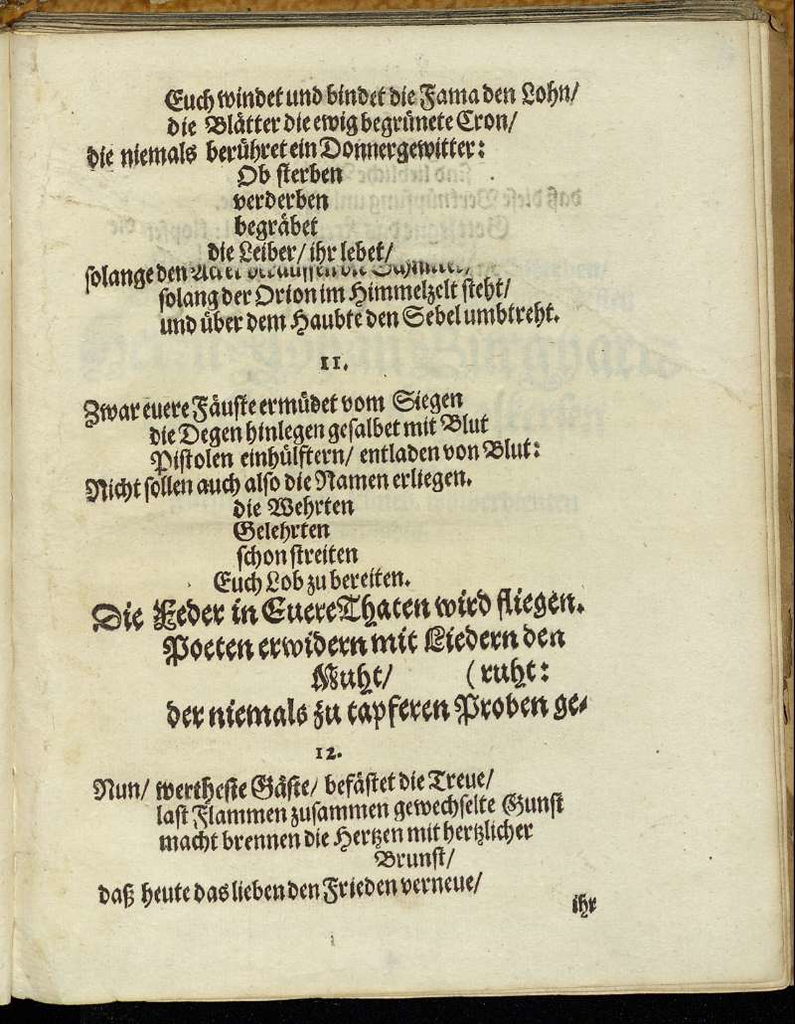 Euch windet und bindet die Fama den Lohn/
die Blätter die ewig begrünete Cron/
die niemals berühret ein Donnergewitter:
Ob sterben
verderben
begräbet
die Leiber/ ihr lebet/
solange den
solang der Orion im Himmelzelt steht/
und über dem Haubte den Sebel umbtreht.
11.
Zwar euere Fäuste ermüdet vom Siegen
die Degen hinlegen gesalbet mit Blut
Pistolen einhülftern/ entladen von Blut:
Nicht sollen auch also die Namen erliegen.
die Wehrten
Gelehrten
schon streiten
Euch Lob zu bereiten.
Die Feder in Euere Thaten wird fliegen.
Poeten erwidern mit Liedern den
Muht/ (ruht:
der niemals zu tapferen Proben ge-
12.
Nun/ wertheste Gäste/ befästet die Treue/
last Flammen zusammen gewechselte Gunst
macht brennen die Hertzen mit hertzlicher
Brunst/
daß heute das lieben den Frieden verneue/
ihr